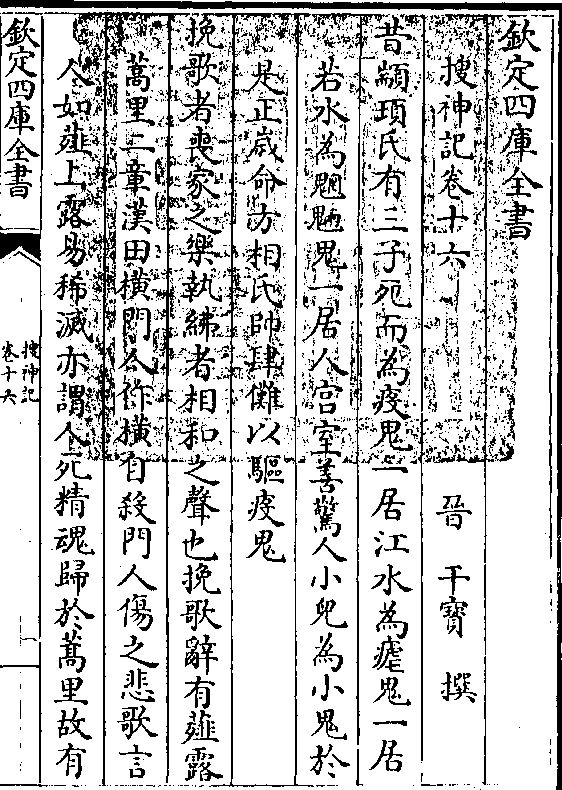 欽定四庫全書
搜神記卷十六
晉 干寶 撰
昔顓頊氏有三子死而為疫鬼一居江水為瘧鬼一居
若水為魍魎鬼一居人宮室善驚人小兒為小鬼於
是正歲命方相氏帥肆儺以驅疫鬼
挽歌者喪家之樂執紼者相和之聲也挽歌辭有薤露
蒿里二章漢田橫門人作橫自殺門人傷之悲歌言
人如薤上露易稀滅亦謂人死精魂歸於蒿里故有
欽定四庫全書
搜神記
卷十六
一